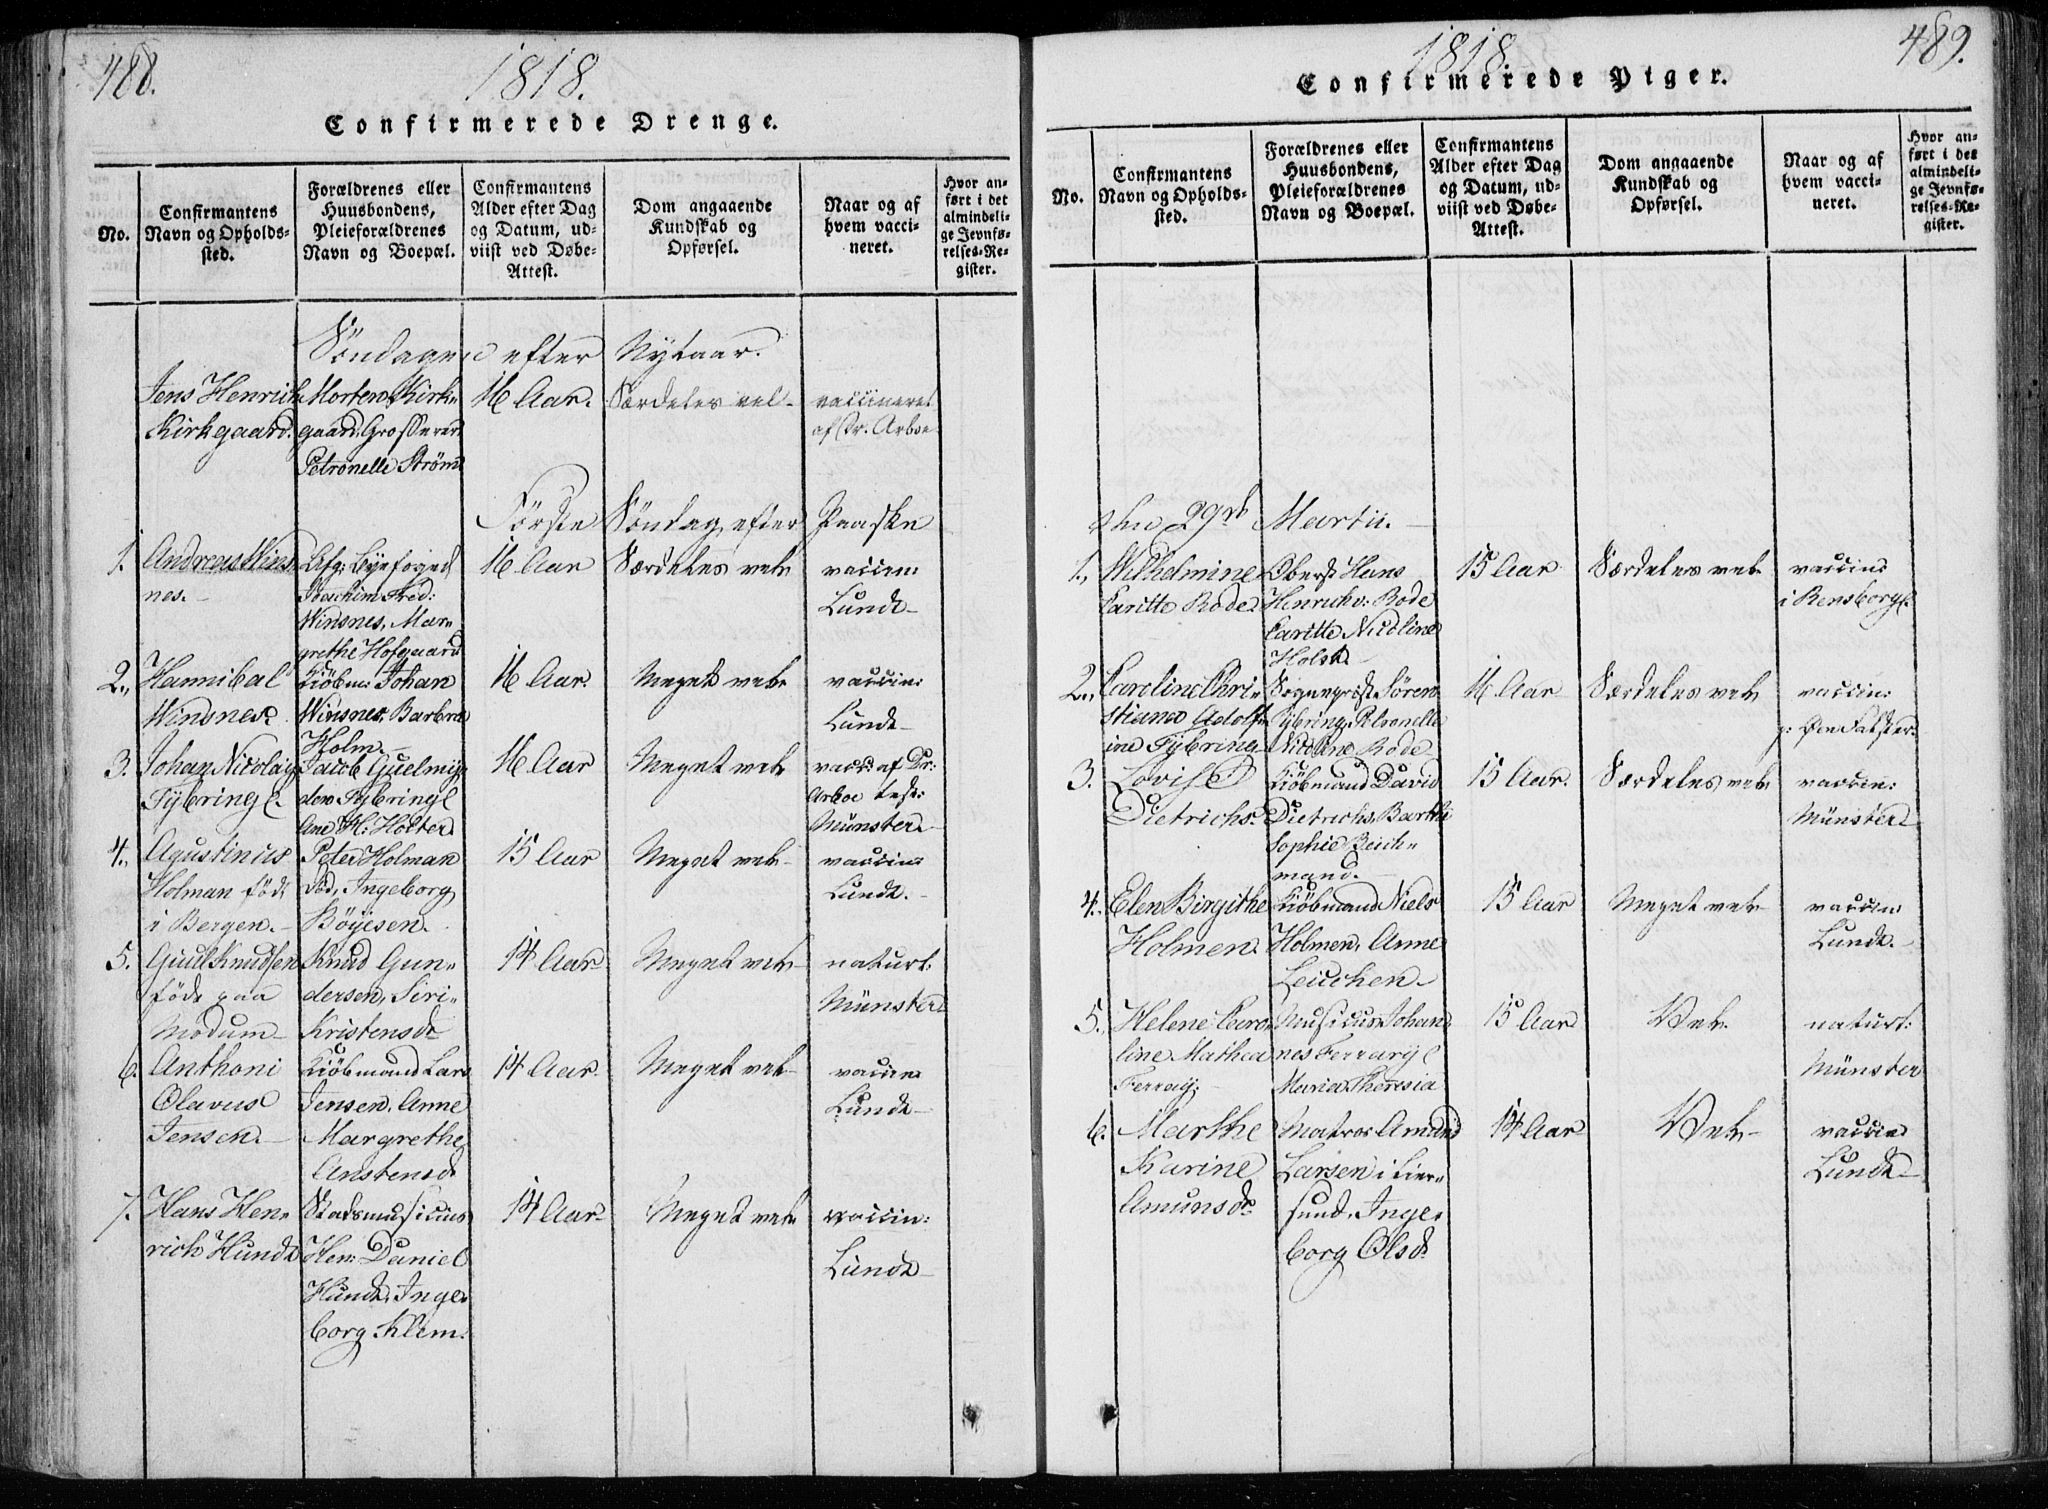 488.
1818.
Confirmerede Drenge.
No.
Confirmantens
Navn og Opholds-
sted.
Forældrenes eller
Huusbondens,
Pleieforældrenes
Navn og Boepæl.
Confirmantens
Alder efter Dag
og Datum, ud-
viist ved Døbe-
Attest.
Dom angaaende
Kundskab og
Opførsel.
Naar og af
hvem vacci-
neret.
Hvor an-
ført i det
almindeli-
ge Jevnfø-
relses-Re-
gister.
Söndagen efter Nytaar.
Jens Henrich
Kirkgaard.
Morten Kirk-
gaard, Grosserer
Petronelle Ström
16 Aar.
Særdeles vel-
vaccineret
af Dr. Arboe
Förste Söndag efter Paaske
1.
Andreas Wins-
nes.
Afg: Byefoged
Joachim Fred:
Winsnes, Mar-
grethe Hofgaard
16 Aar
Særdeles vel-
vaccin:
Lunde-
2.,
Hannibal
Windsnes.
Kiöbm: Johan
Winsnes, Barbra
Holm.-
16 Aar.
Meget vel-
vaccin:
Lunde-
3.
Johan Nicolay
Fÿbring.
Jacob Guelmÿ-
den Fÿbring
Ane H: Holter.
16 Aar
Meget vel-
vacc: af Dr:
Arboe test:
Münster.-
4.,
Agustinus
Holman föd
i Bergen.-
Peter Holman
Ingeborg
Böyesen.
15 Aar
Meget vel-
vaccin:
Lunde.-
5.
Guul Knudsen
föd paa
Modum-
Knud Gun-
dersen, Siri
Kristensd.
14 Aar-
Meget vel-
naturl:
Münster
6.
Anthoni
Olavus
Jensen.-
Kiöbmand Lars
Jensen, Anne
Margrethe
Anstensd.
14 Aar.
Meget vel-
vaccin:
Lunde-
7.
Hans Hen-
rich Hunde
Stadsmusicus
Hen: Daniel
Hunde, Inge-
borg Klem.
14 Aar-
Meget vel-
vaccin:
Lunde-
489.
1818.
Confirmerede Piger.
No.
Confirmantens
Navn og Opholds-
sted.
Forældrenes eller
Huusbondens,
Pleieforældrenes
Navn og Boepæl.
Confirmantens
Alder efter Dag
og Datum, ud-
viist ved Døbe-
Attest.
Dom angaaende
Kundskab og
Opførsel.
Naar og af
hvem vacci-
neret.
Hvor an-
ført i det
almindeli-
ge Jevnfø-
relses-Re-
gister.
29 Martii.-
1.,
Wilhelmine
Caritte Rode.
Oberst Hans
Henrich v: Rode
Caritte Nicoline
Holst.-
15 Aar
Særdeles vel-
vaccin:
i Rensborg.
2.,
Caroline Chri-
stiane Adolf-
ine Fÿbring-
Sogneprest Sören
Fÿbring, Petronelle
Nicoline Rode-
16 Aar
Særdeles vel-
vaccin:
p: Öen Falster.
3.
Lovise
Dietrichs.
Kiöbmand David
Dietrichs, Barthe
Sophie Beich-
mand.-
15 Aar.
Særdeles vel-
vaccin:
Münster
4.
Elen Birgithe
Holmen.
Kiöbmand Niels
Holmen, Anne
Leuchen-
15 Aar
Meget vel-
vaccin:
Lunde.-
5.
Helene Caro-
line Mathea
Ferray.-
Musicus Johan-
nes Ferrary
Maria Theresia
15 Aar
Vel-
naturl:
Münster
6.
Marthe
Karine
Amunsd.
Matros Amund
Larsen i Lier-
sund, Inge-
borg Olsd.
14 Aar
Vel-
vaccin:
Lunde-